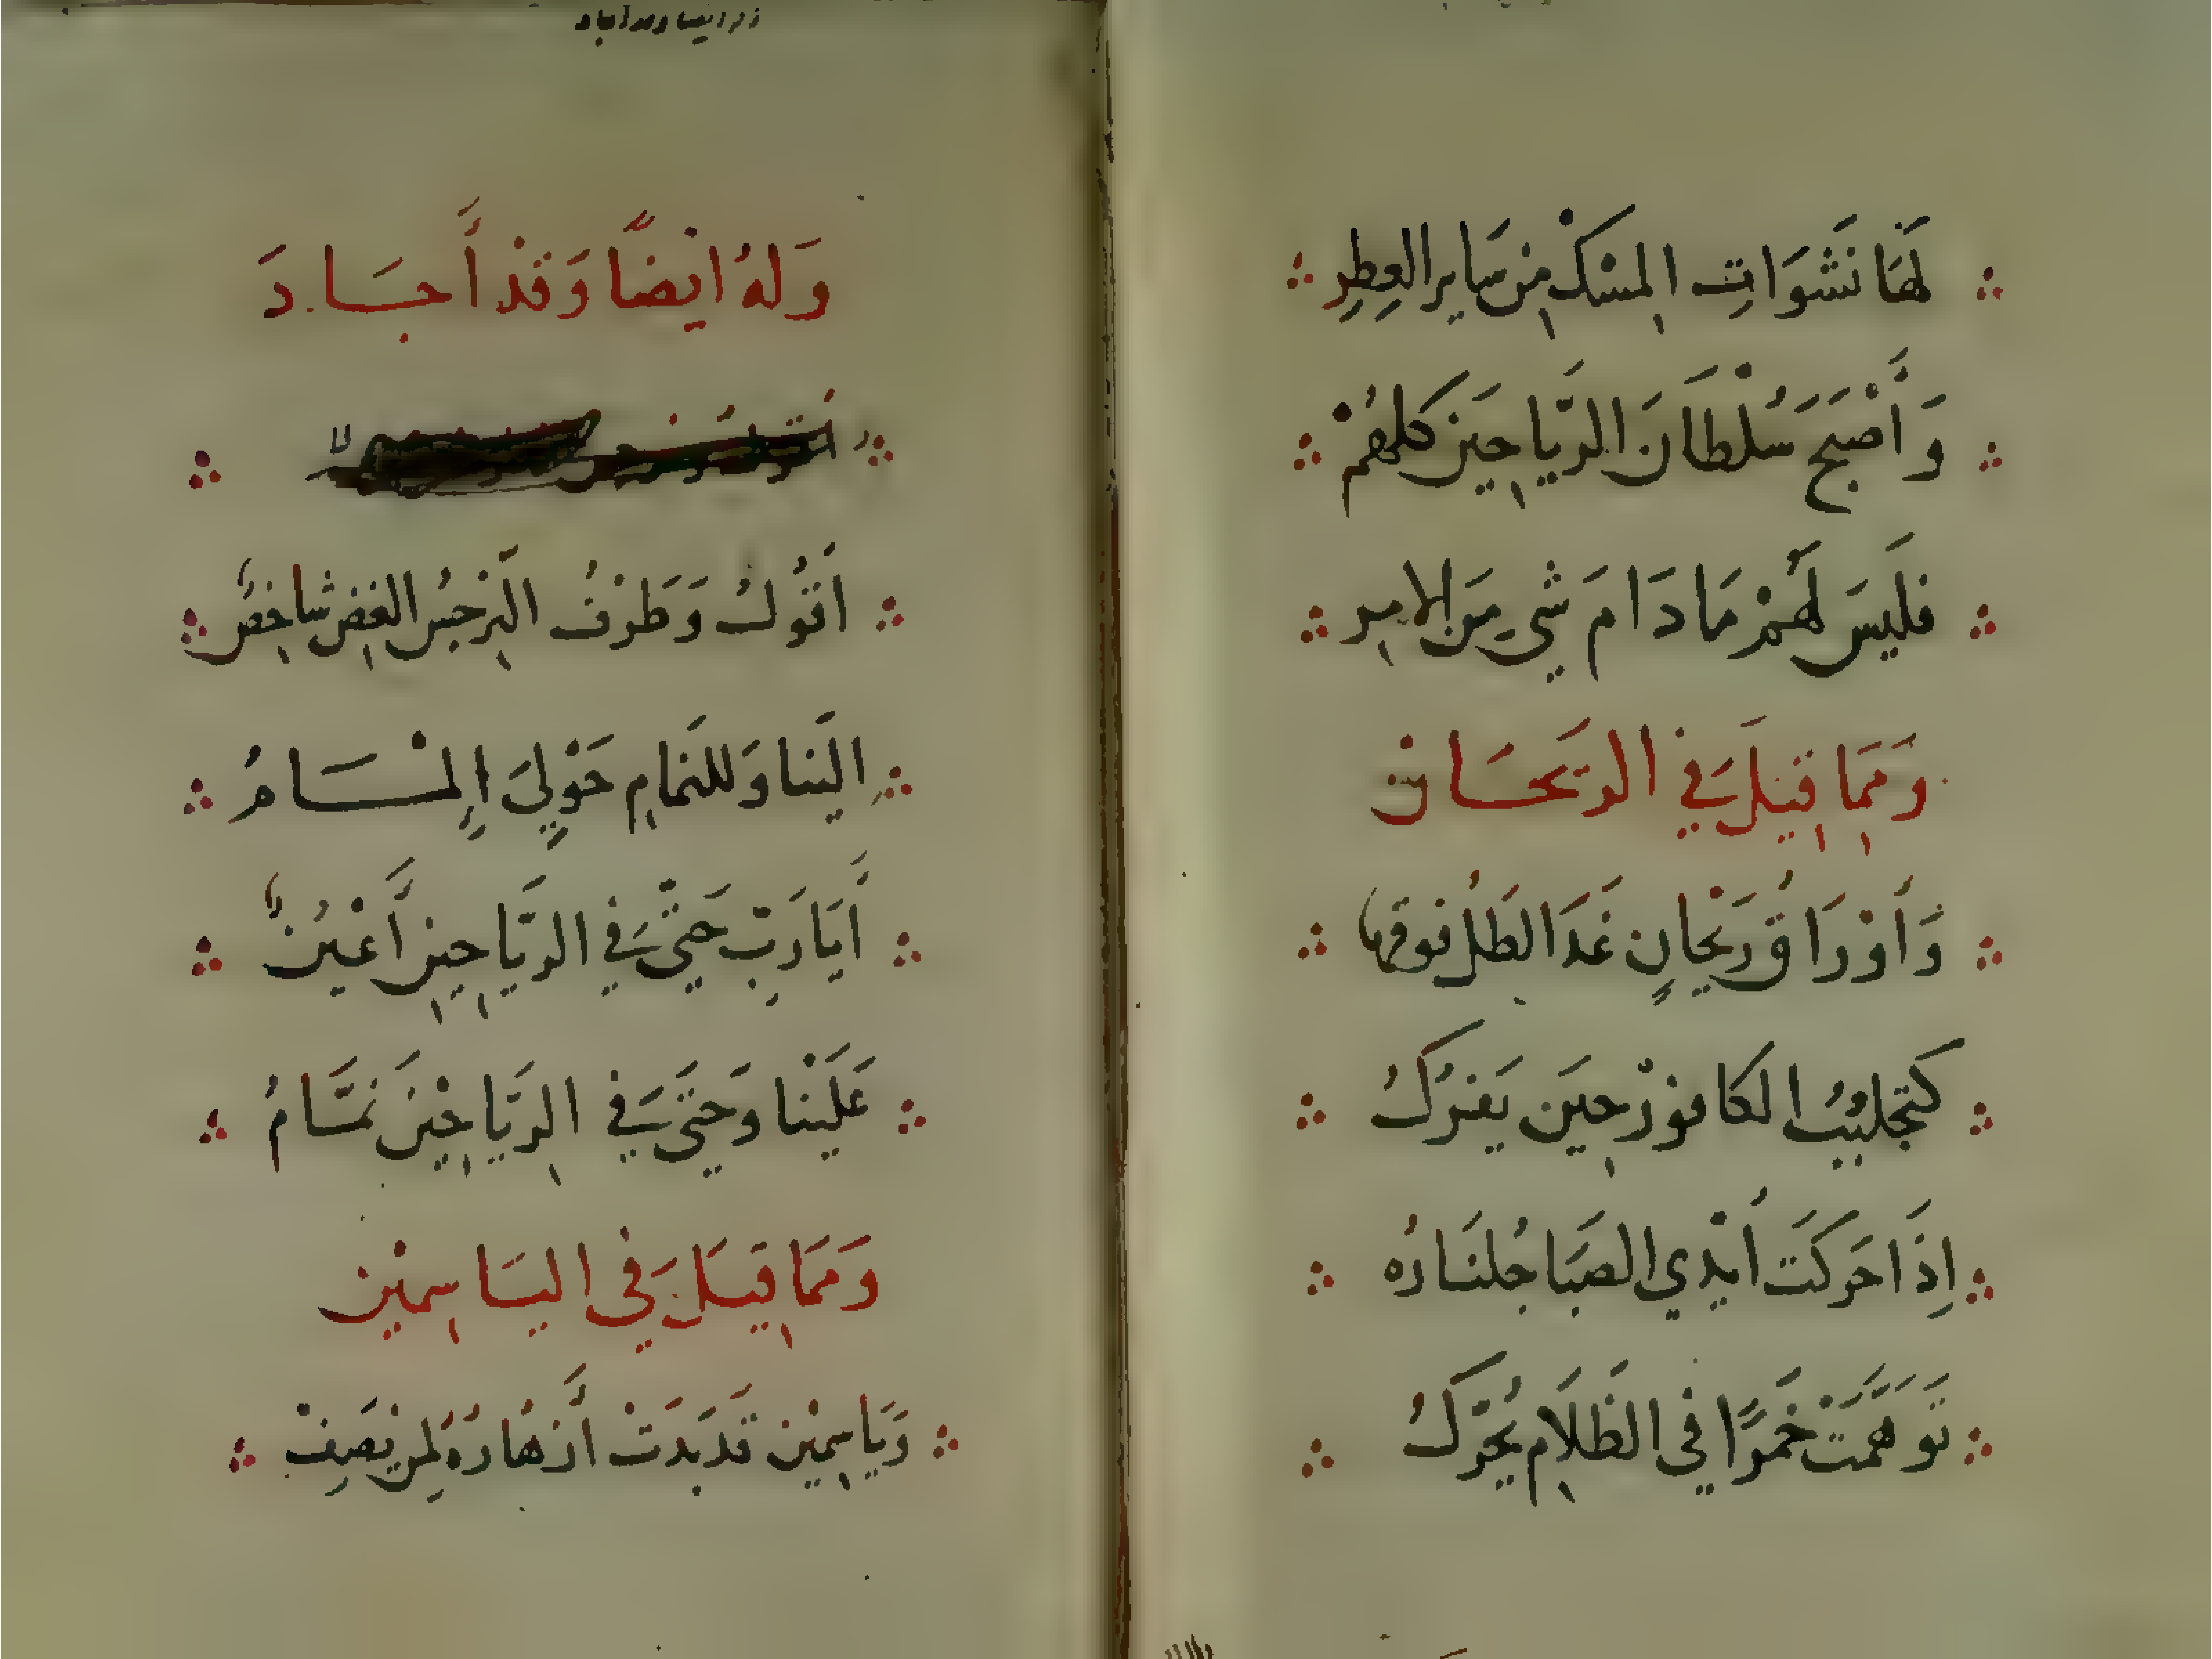 لَهَا نَشَوَاتِ المِسْكِ مِنْ سَايِرِ العِطِرِ
وَأَصْبَحَ سُلْطَانَ الرَّيَاحِينِ كُلِّهُمْ
فَلَيسَ لَهُمْ مَا دَامَ شَيٍ مِنَ الامرِ
وَمِمَّا قِيلَ فِي الرَّيحَانْ
وَأَوْرَاقُ رَيْحَانٍ غَدَا الطَّلُ فُوقَهَا
كَتَجلبُبُ الكَافورْ حِينَ يَفَرُكُ
اِذَا حَرَكَت أَيْدِي الصَبَا جُلنَارُه
تَوَهَمَتْ خَمرًا فِي الظَلَامِ يُحَرَّكُ
وَلَهُ ايْضًا وَقَدْ أَجَادَ
اَقُولُ وَطَرْفُ النَّرْجِسُ الغَضِ شَاخِصٌ
الَينا وَللنَمامِ حَوْلِيَ إِلْمَامُ
أَيَا رَبِّ حَتَّى فِي الرَّيَاحِينِ أَعْيُنٌ
عَلَيْنا وَحَتَّى فِي الرَيَاحِيْنَ نَمَّامُ
وَمِمَا قِيلَ فِي اليَاسِمِيْن
وَيَاسِمِيْن قَد بَدَتْ أَزْهَارُهُ لِمَنْ يَصِفْ